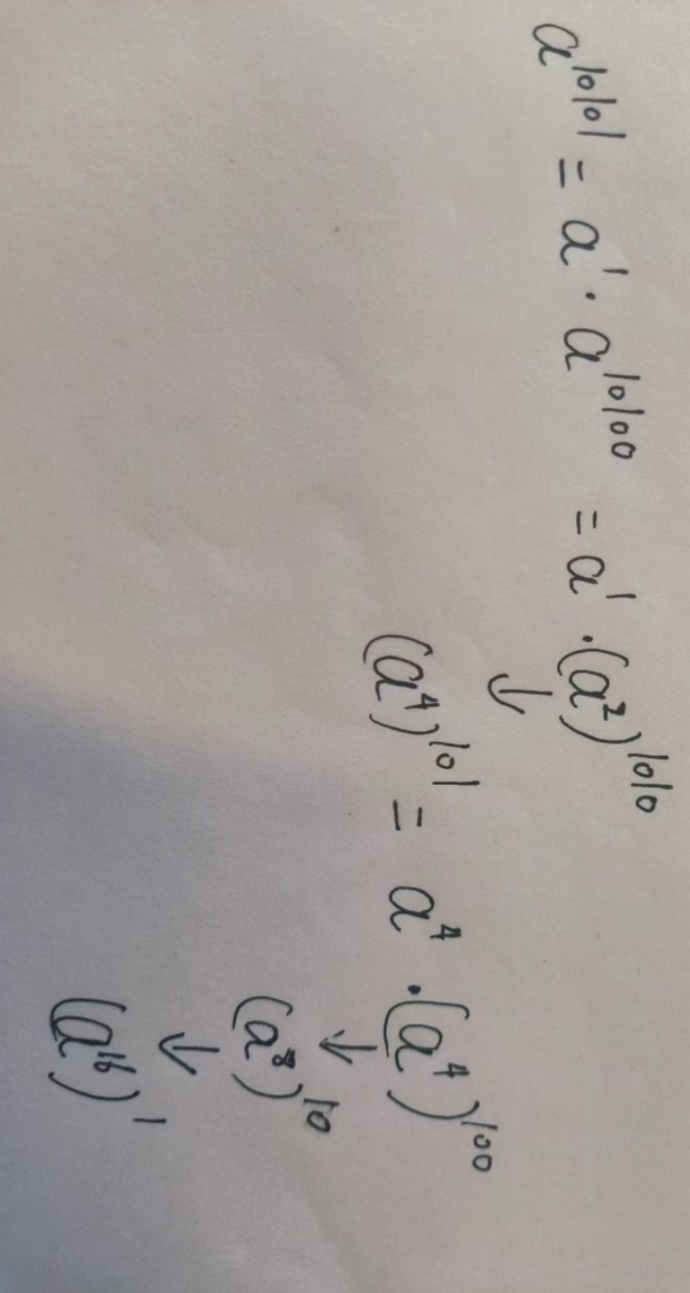 a^10101 = a^1 · a^10100 = a^1 · (a^2)^1010
↓
(a^4)^101 = a^4 · (a^4)^100
↓
(a^8)^10
↓
(a^16)^1